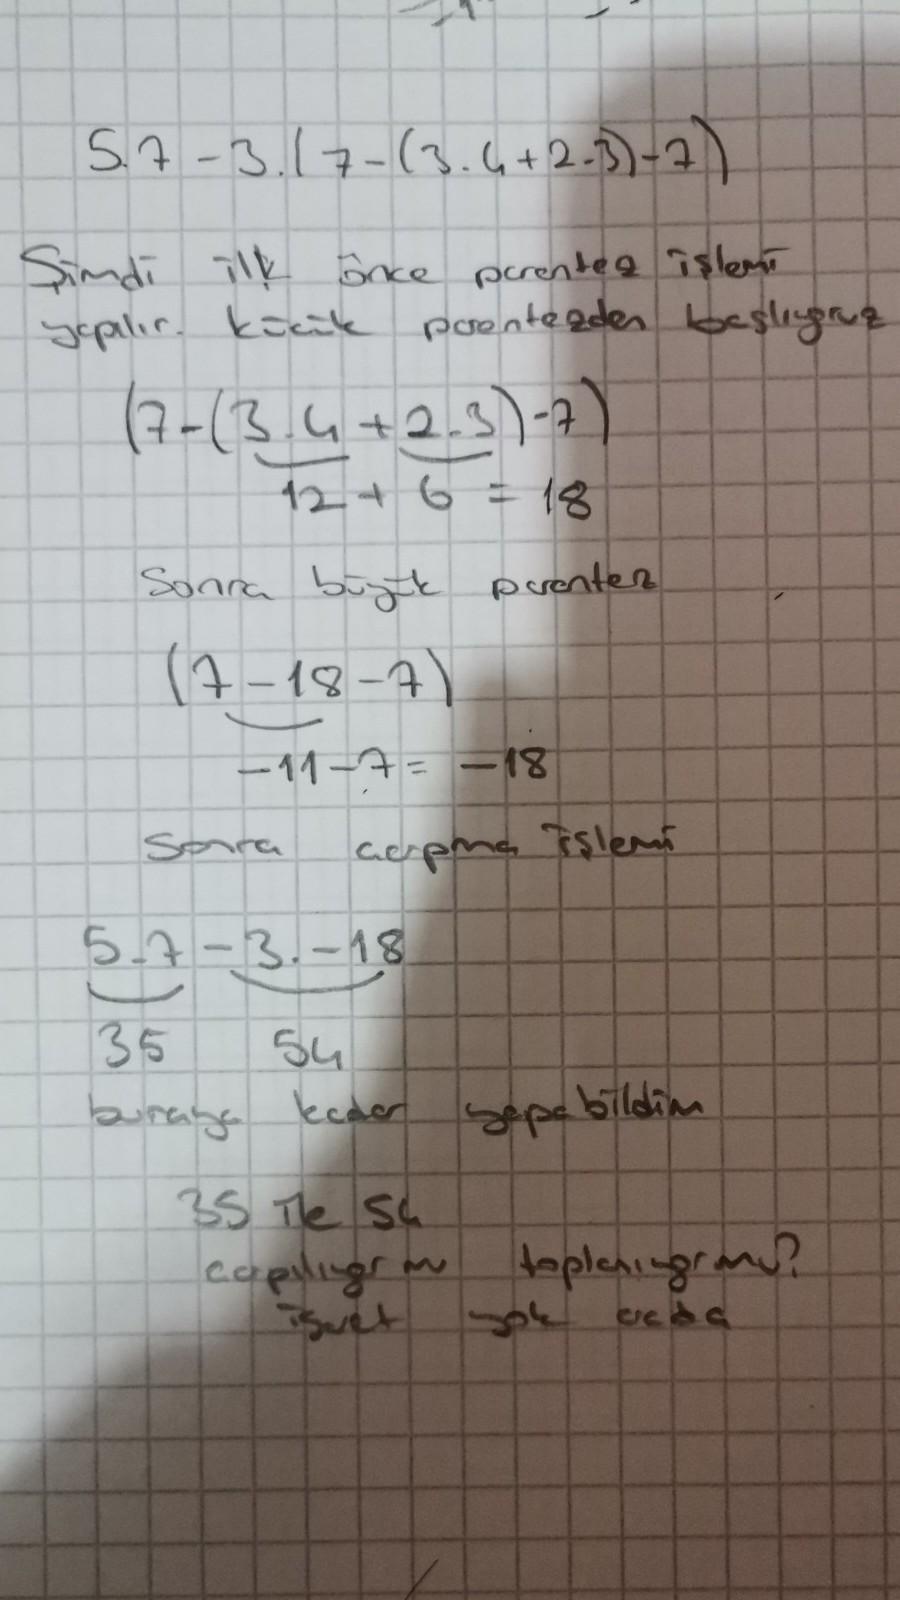 5.7 - 3.(7-(3.4+2.3)-7)
Şimdi ilk önce parentez işlemi
yapılır. küçük parentezden başlıyoruz
(7-(3.4+2.3)-7)
12 + 6 = 18
Sonra büyük parentez
(7-18-7)
-11-7= -18
Sonra çarpma işlemi
5.7 - 3.-18
35 54
buraya kadar yapabildim
35 ile 54
çarpılıyor mu toplanıyor mu?
işaret yok orada